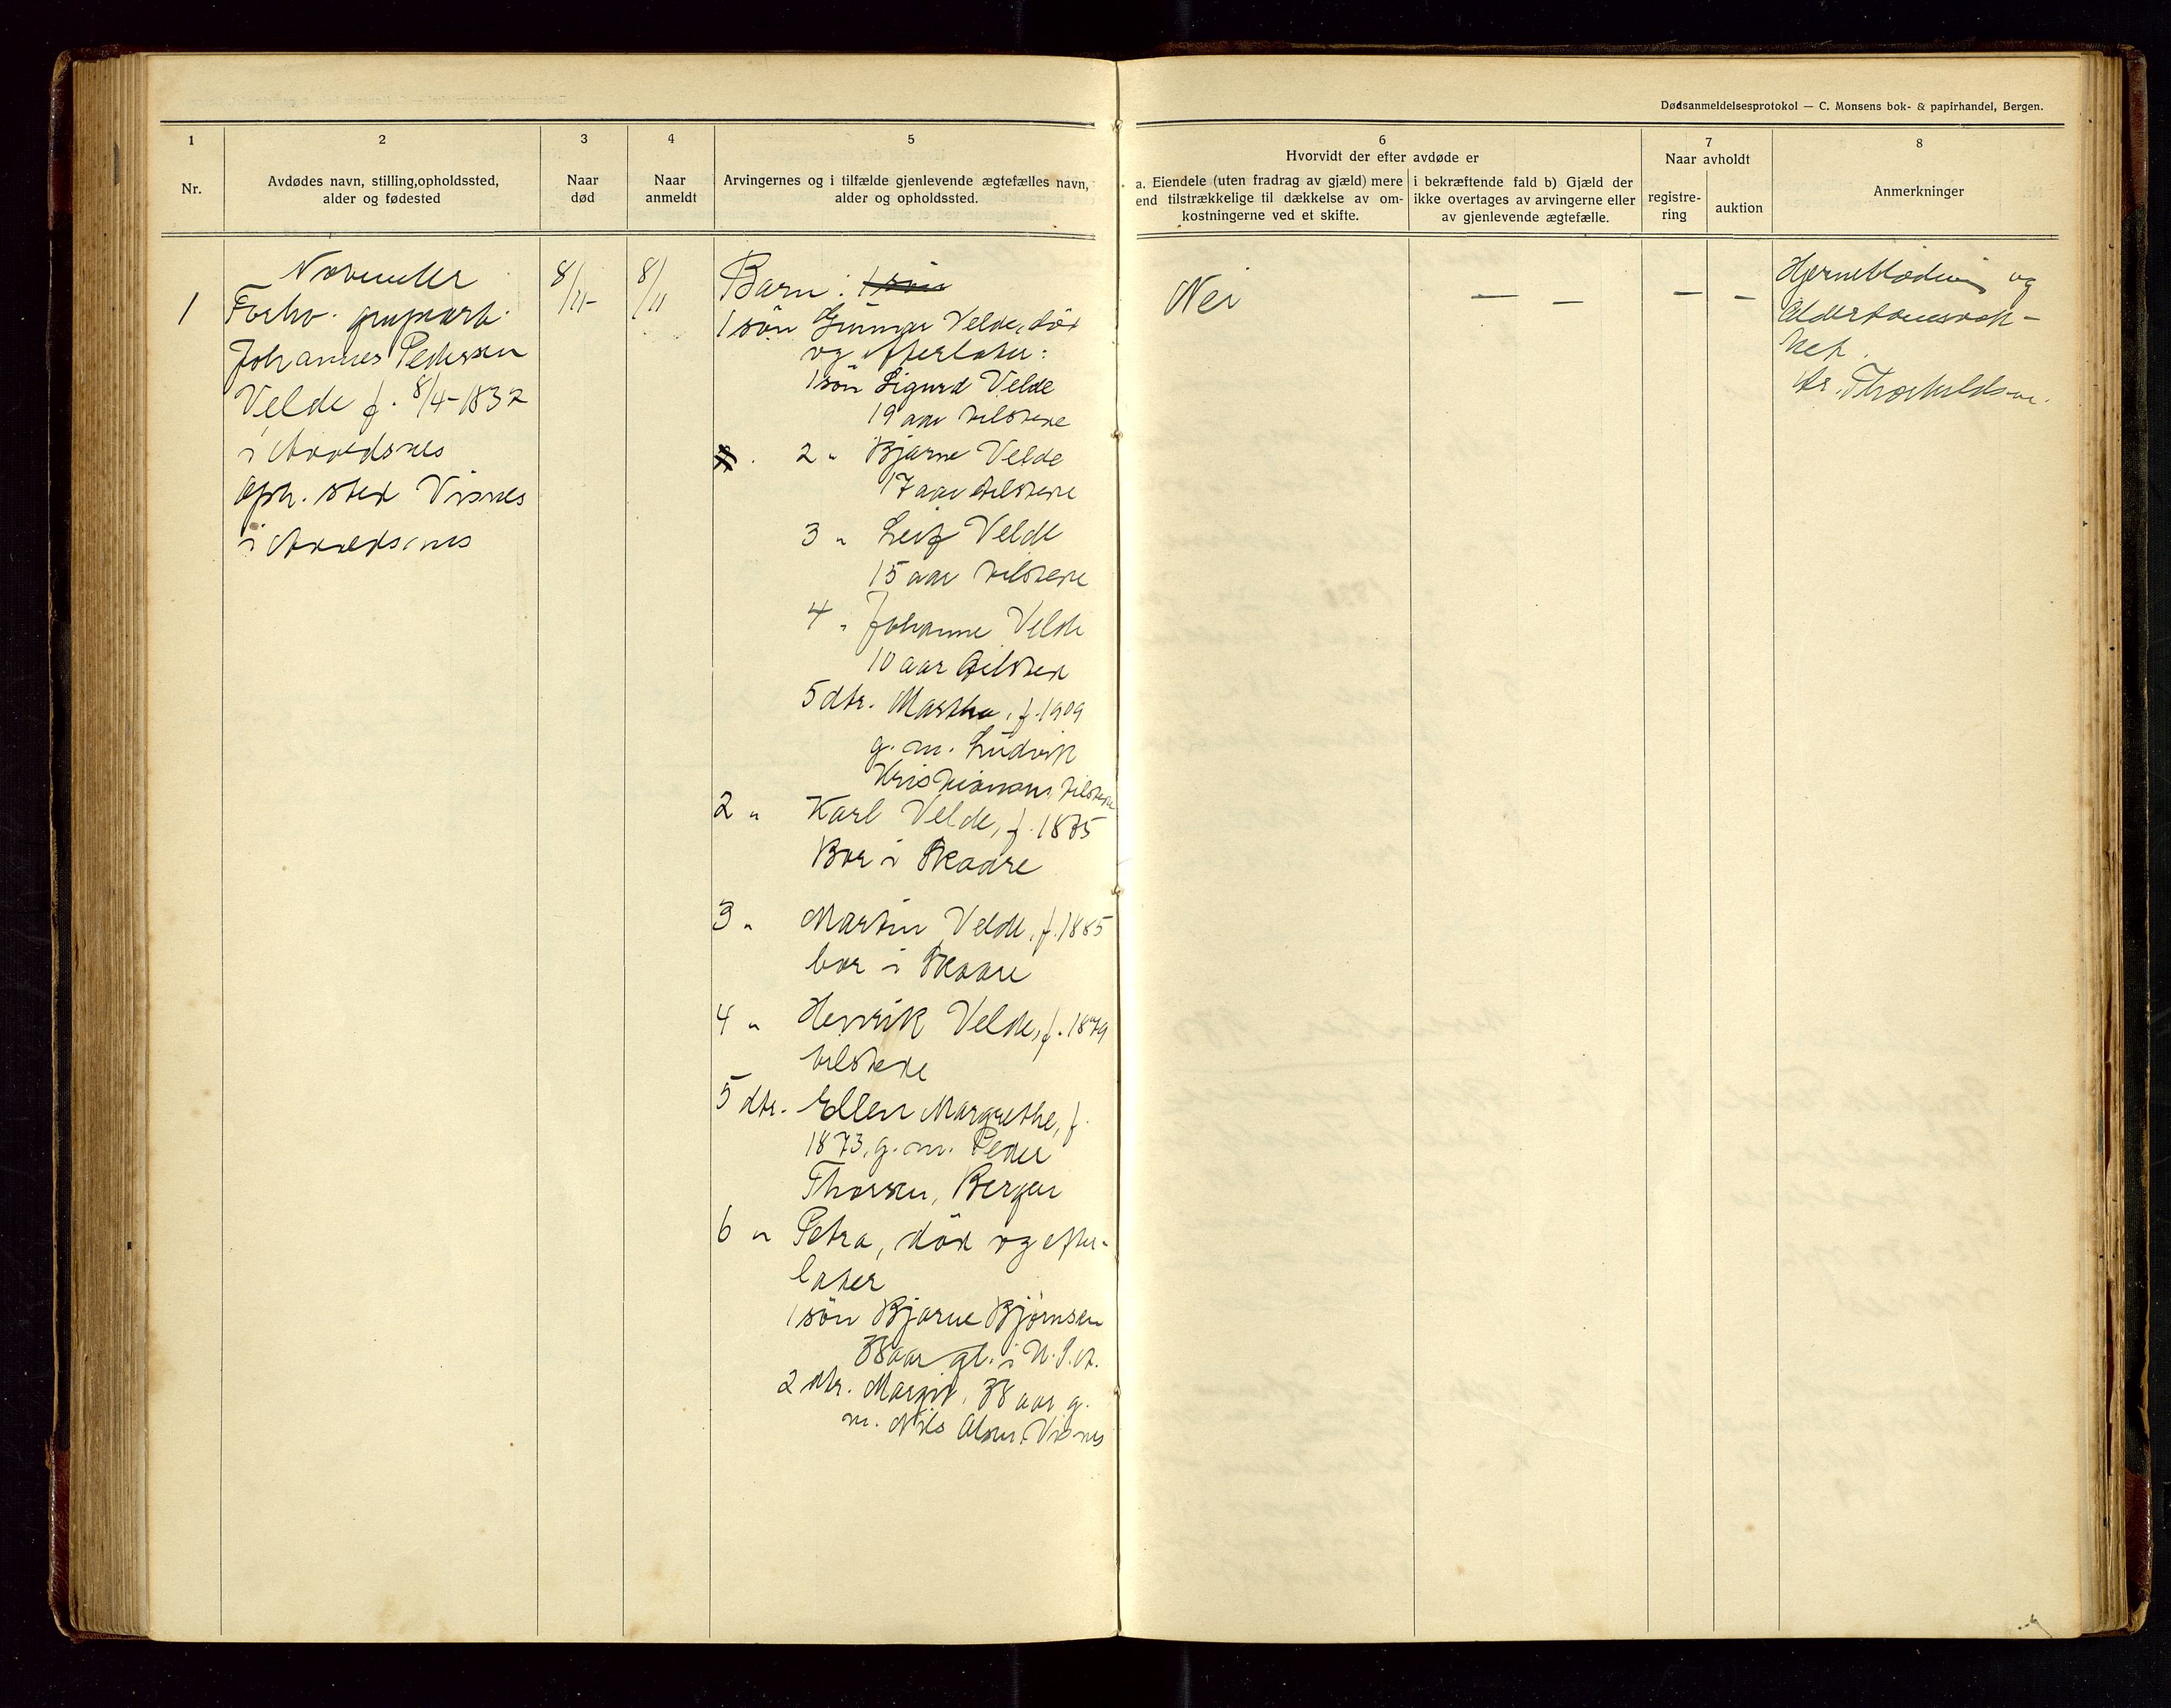 Dødsanmeldelsesprotokol — C. Monsens bok- & papirhandel, Bergen.
1
Nr.
2
Avdødes navn, stilling, opholdssted,
alder og fødested
3
Naar
død
4
Naar
anmeldt
5
Arvingernes og i tilfælde gjenlevende ægtefælles navn,
alder og opholdssted.
6
Hvorvidt der efter avdøde er
a. Eiendele (uten fradrag av gjæld) mere
end tilstrækkelige til dækkelse av om-
kostningerne ved et skifte.
i bekræftende fald b) Gjæld der
ikke overtages av arvingerne eller
av gjenlevende ægtefælle.
7
Naar avholdt
registre-
ring
auktion
8
Anmerkninger
November
1
Forhv. grubearb.
Johannes Pedersen
Velde f. 8/4-1832
i Avaldsnes
Oph. sted Visnes
i Avaldsnes
8/11-
8/11
Barn: 1 søn
1 søn Gunnar Velde, død
og efterlater:
1 søn Sigurd Velde
19 aar tilstede
2 " Bjarne Velde
17 aar tilstede
3 " Leif Velde
15 aar tilstede
4 " Johanne Velde
10 aar tilsted
5 dtr. Martha, f. 1909
g. m. Ludvik
Kristiansen, tilstede
2 " Karl Velde, f. 1875
Bor i Skaare
3 " Martin Velde, f. 1885
bor i Skaare
4 " Henrik Velde, f. 1879
tilstede
5 dtr. Ellen Margrethe, f.
1873, g. m. Peder
Thorsen, Bergen
6 " Petra, död og efter-
later
1 søn Bjarne Björnsen
38 aar gl. i U.S.A.
2 dtr. Margit, 38 aar g.
m. Nils Olsen, Visnes
Nei
— —
— —
Hjerneblødning og
Alderdomssvak-
het.
dr. Thorkildsen.